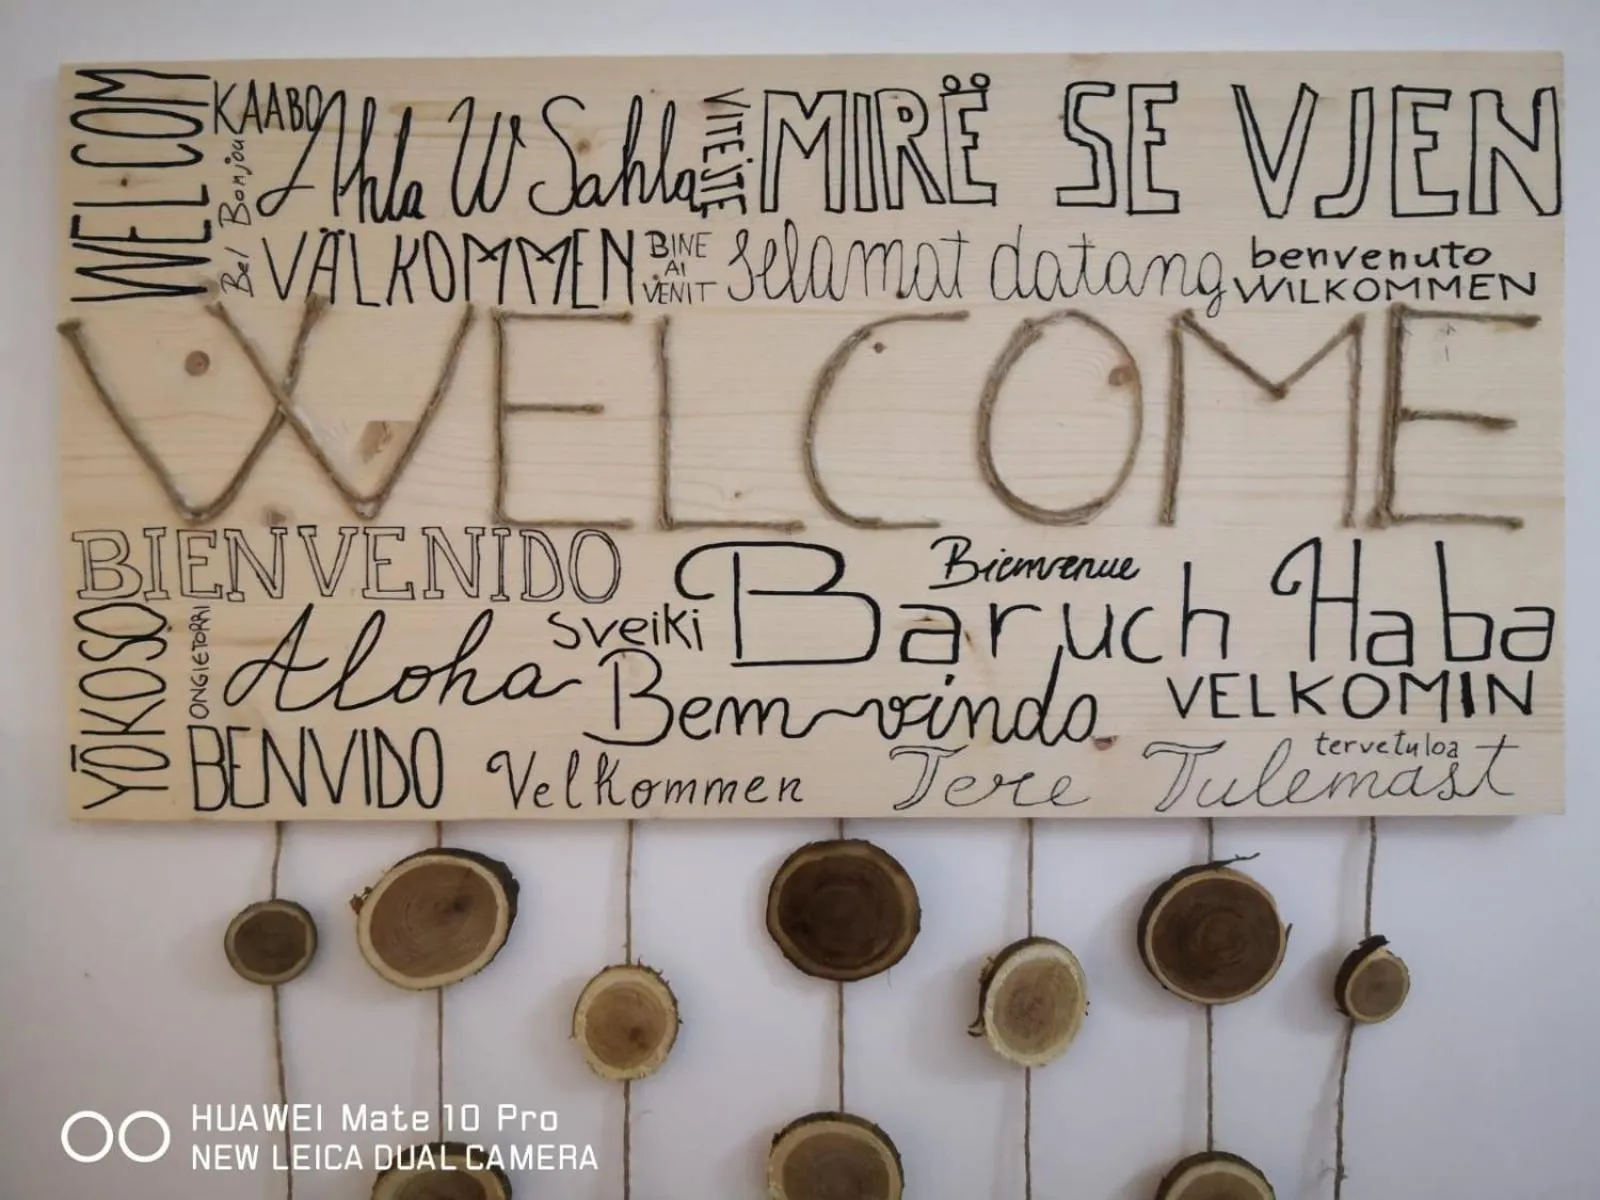 WELCOM
KAABO
Bel Bonjou
Ahla W Sahla
VITEJTE
MIRË SE VJEN
VÄLKOMMEN
BINE
AI
VENIT
Selamat datang
benvenuto
WILKOMMEN
WELCOME
BIENVENIDO
Bienvenue
Baruch Haba
YŌKOSO
ONGIETORRI
Aloha
Sveiki
Bem-vindo
VELKOMIN
BENVIDO
Velkommen
Tere Tulemast
tervetuloa
HUAWEI Mate 10 Pro
NEW LEICA DUAL CAMERA